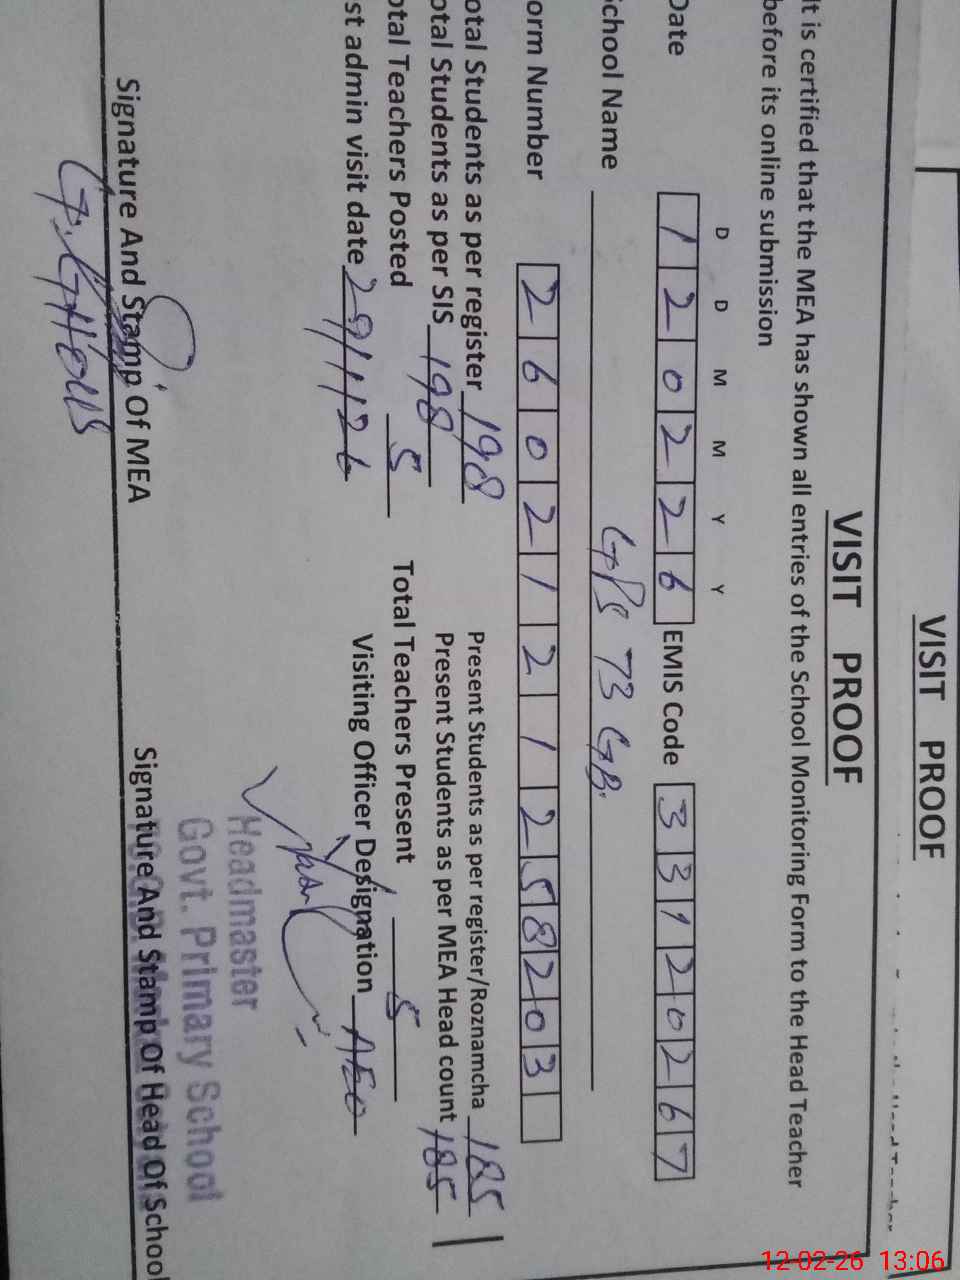 VISIT PROOF
VISIT PROOF
It is certified that the MEA has shown all entries of the School Monitoring Form to the Head Teacher
before its online submission
D D M M Y Y
Date 1 2 0 2 2 6 EMIS Code 3 3 1 2 0 2 6 7
School Name GPS 73 GB.
orm Number 2 6 0 2 1 2 1 2 5 8 2 0 3
otal Students as per register 198 Present Students as per register/Roznamcha 185
otal Students as per SIS 198 Present Students as per MEA Head count 185
otal Teachers Posted 5 Total Teachers Present 5
st admin visit date 29/1/26 Visiting Officer Designation AEO
Headmaster
Govt. Primary School
Signature And Stamp Of MEA Signature And Stamp Of Head Of School
12-02-26 13:06